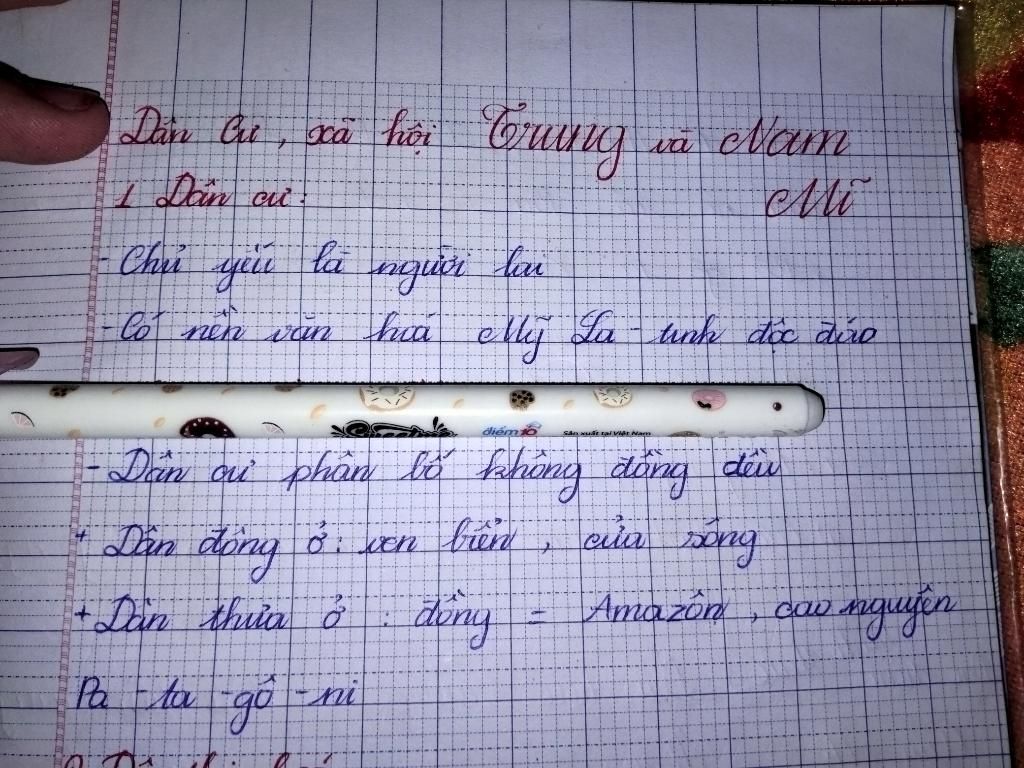 Dân Cư, xã hội Trung và Nam
Mĩ
1 Dân cư:
- Chủ yếu là người lai
- Có nền văn hoá Mỹ La-tinh độc đáo
điểm 10 Sản xuất tại Việt Nam
- Dân cư phân bố không đồng đều
+ Dân đông ở: ven biển, cửa sông
+ Dân thưa ở : đồng = Amazôn, cao nguyên
Pa-ta-gô-ni